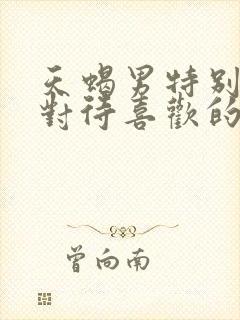 天蝎男特别
對待喜歡的
曾向南